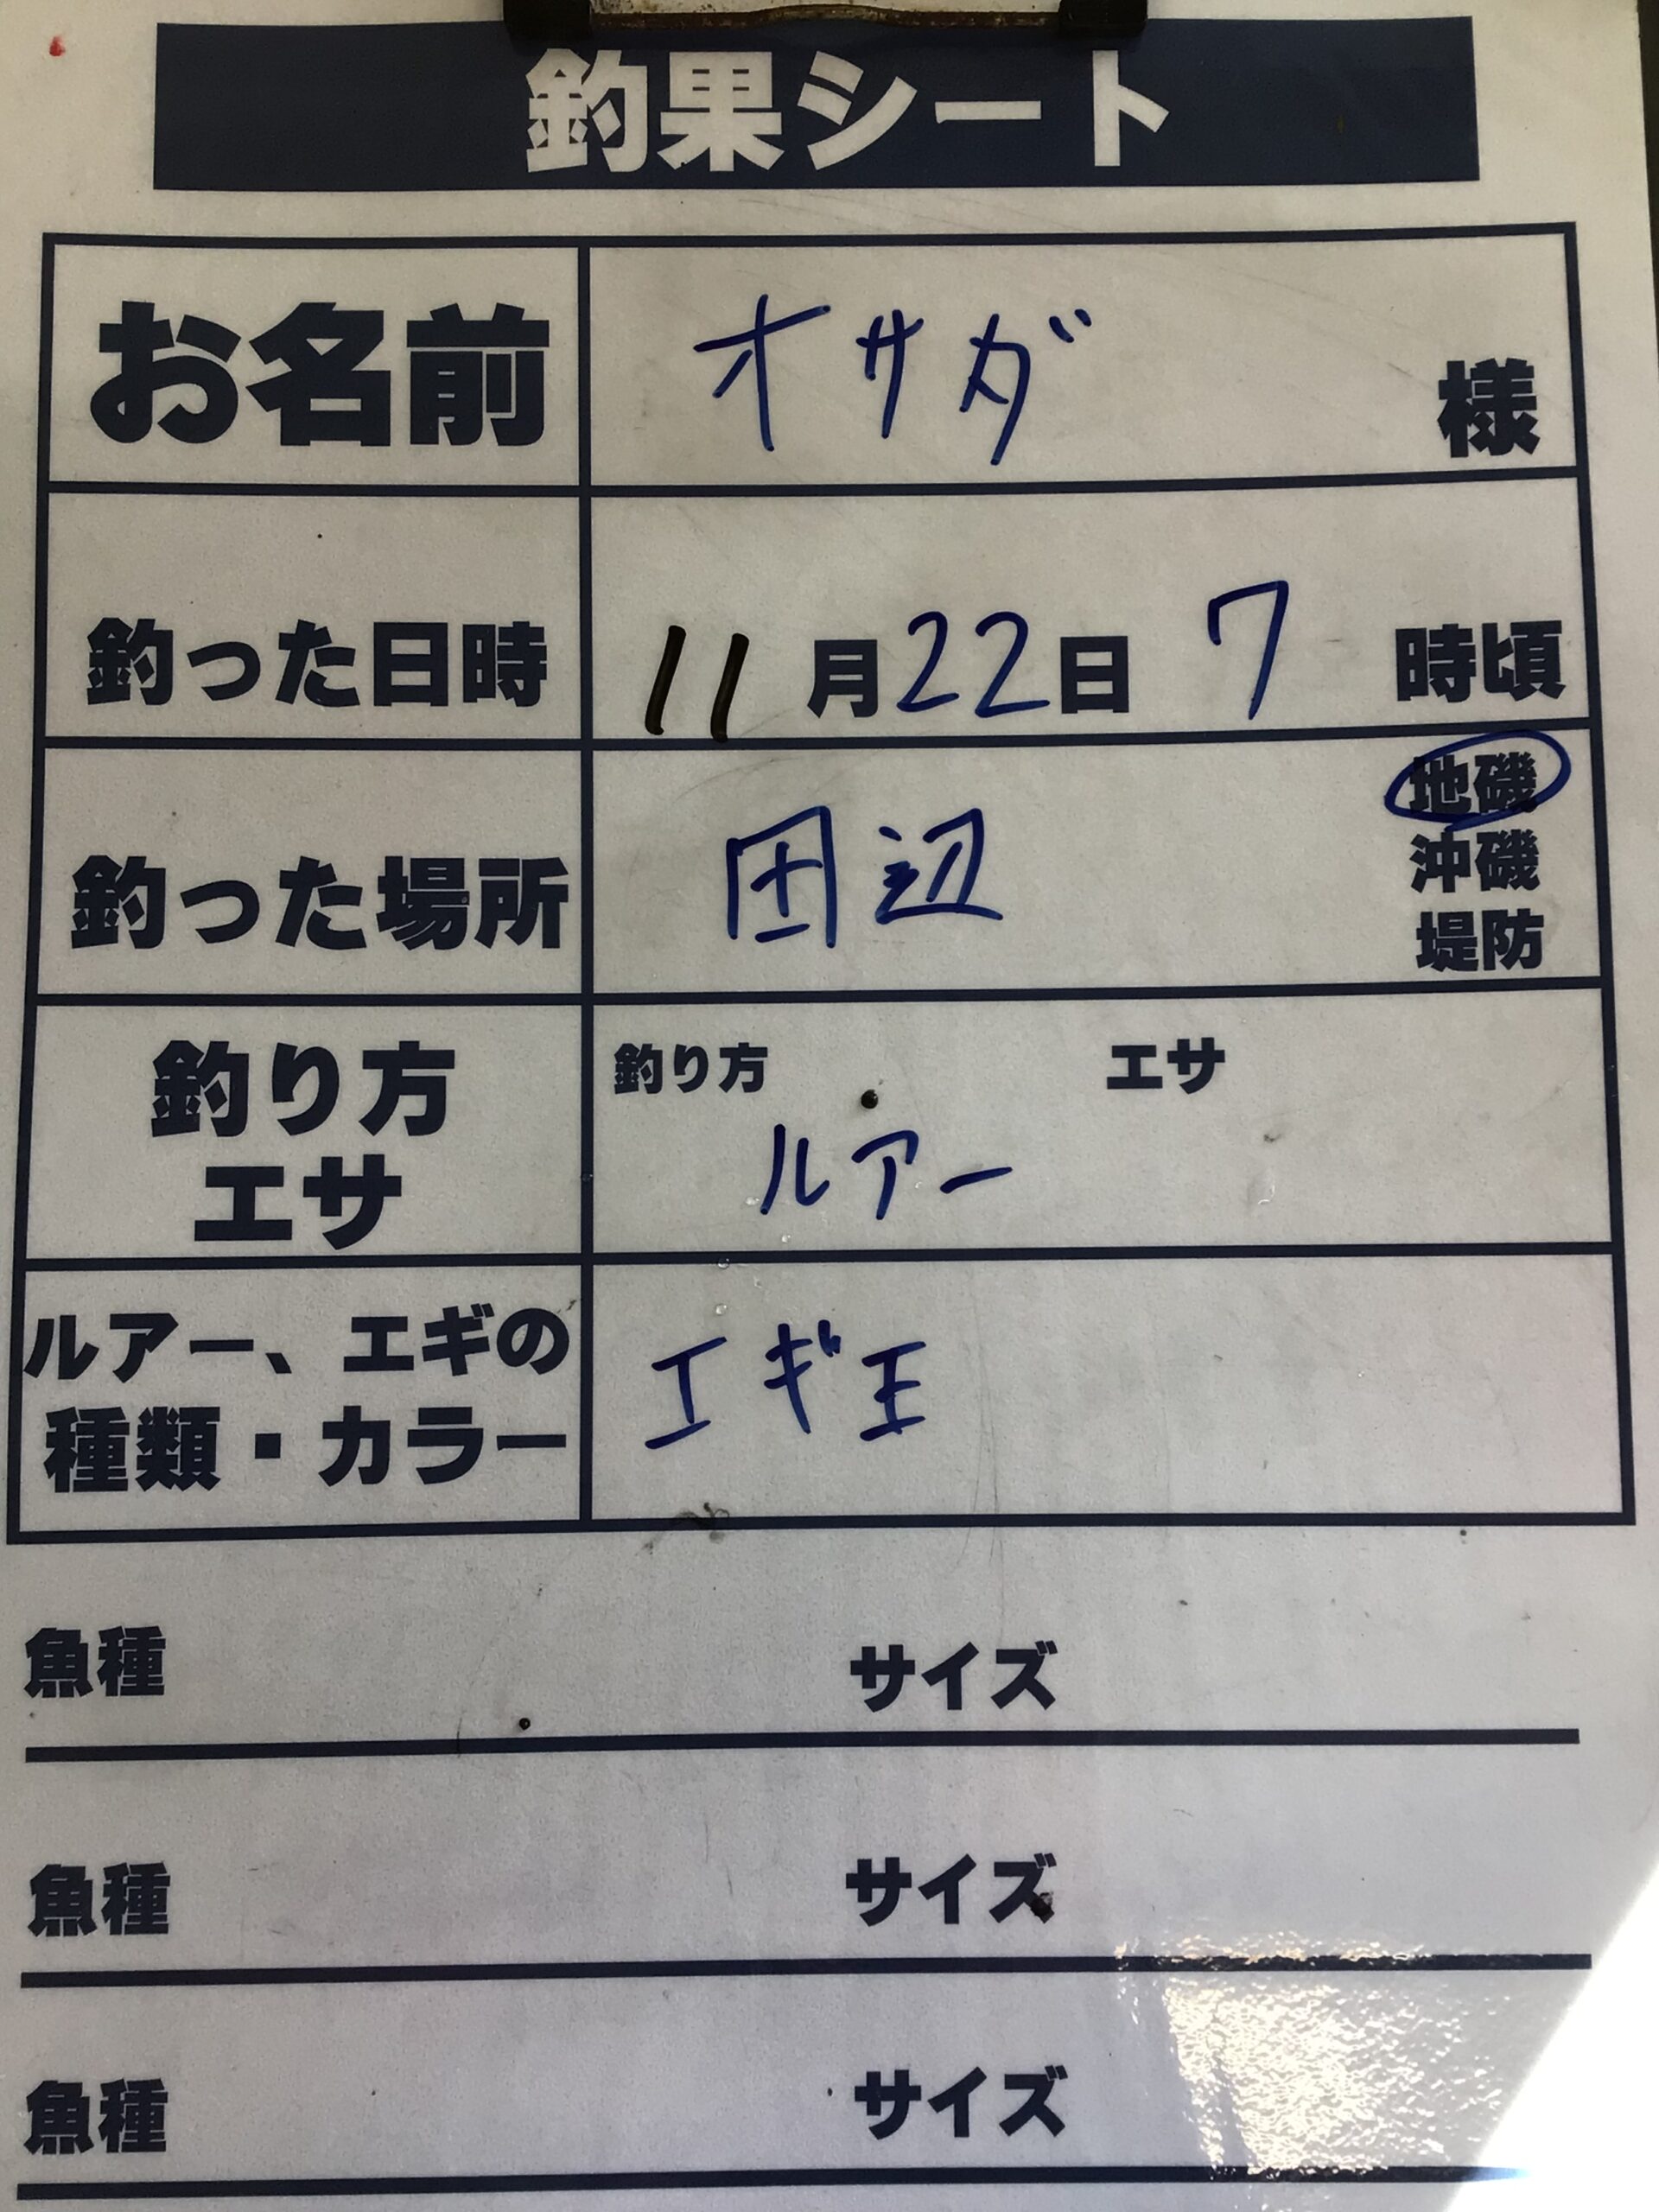 釣果シート
お名前 オサダ 様
釣った日時 11月22日 7 時頃
釣った場所 田辺 地磯
沖磯
堤防
釣り方 エサ
釣り方
エサ
ルアー
ルアー、エギの種類・カラー エギ王
魚種 サイズ
魚種 サイズ
魚種 サイズ